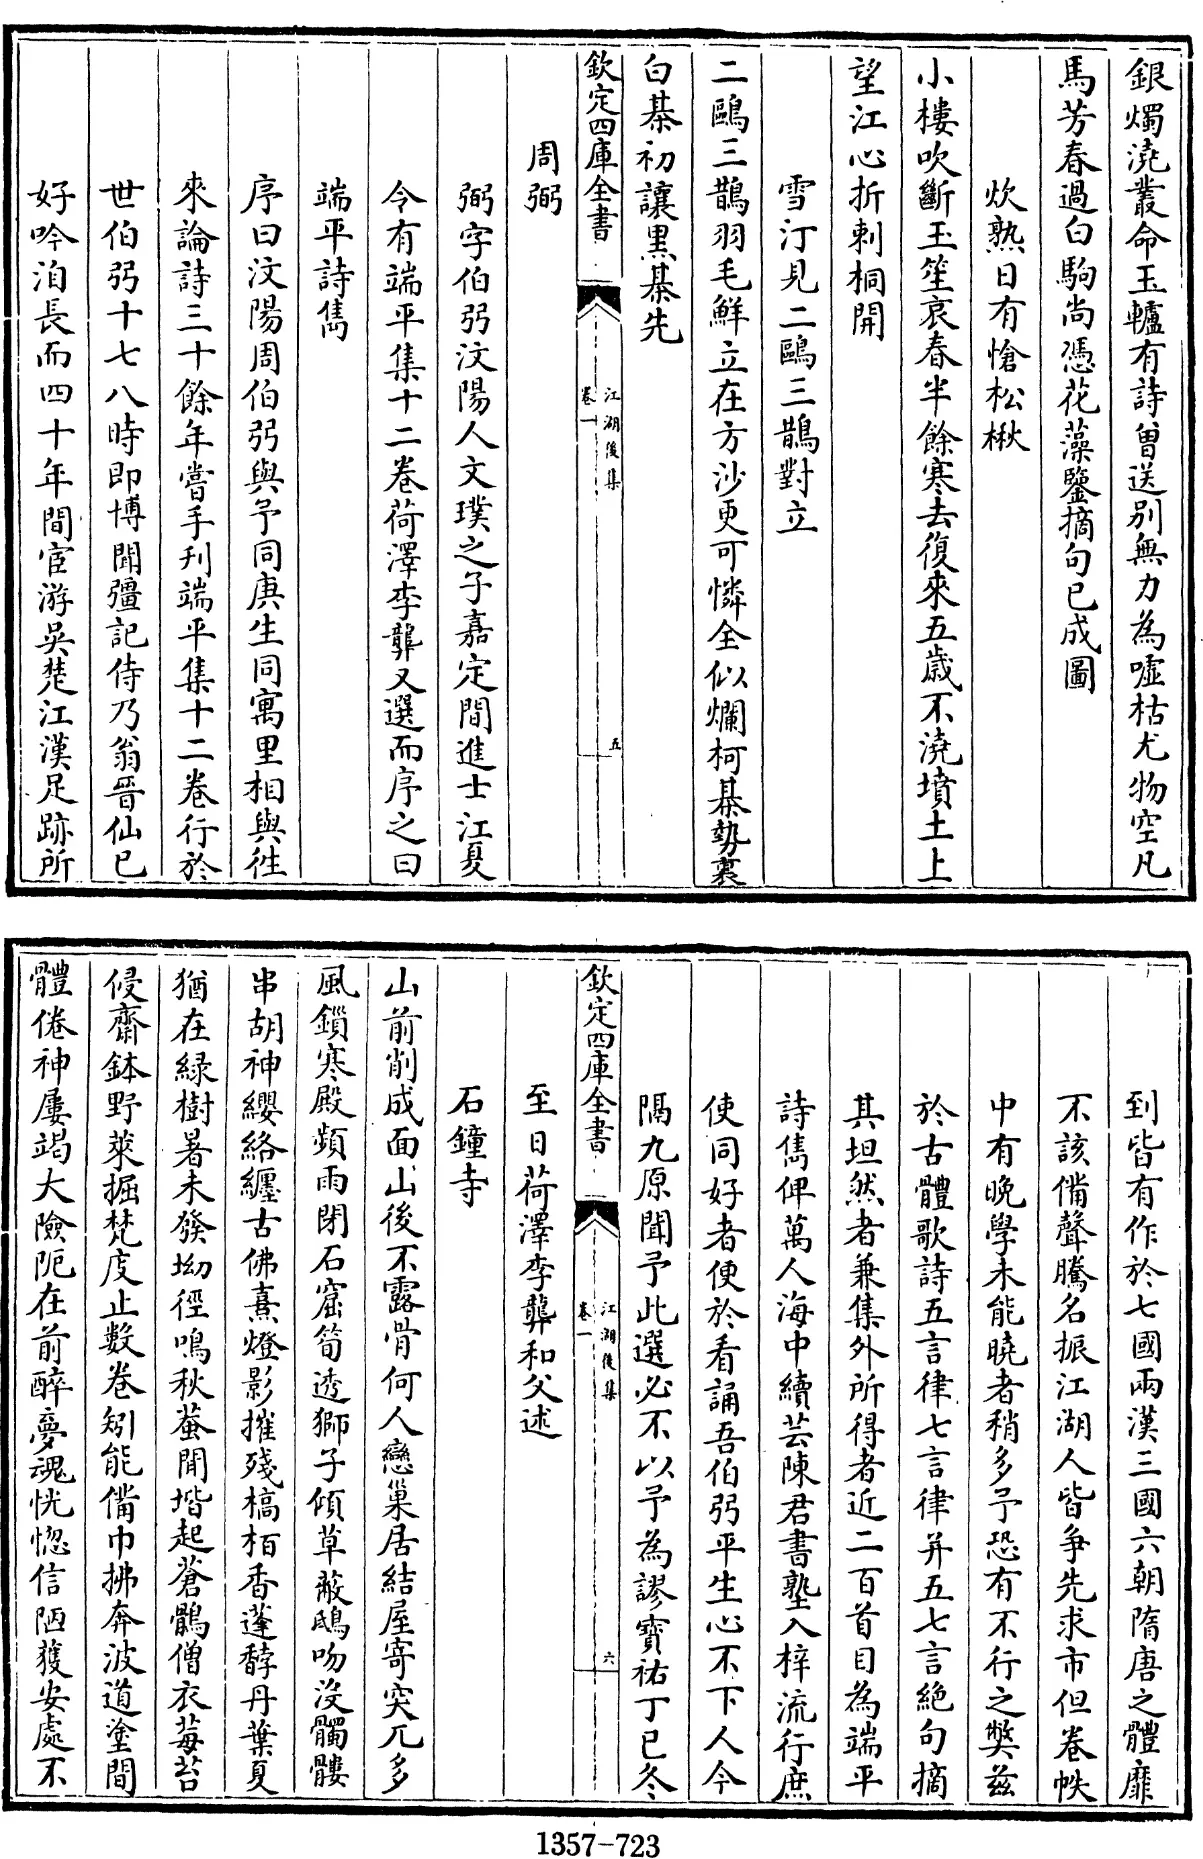 銀燭澆叢命玉轤有詩曾送別無力為噓枯尤物空凡
馬芳春過白駒尚憑花藻鑒摘句已成圖
炊熟日有愴松楸
小樓吹斷玉笙哀春半餘寒去復來五歲不澆墳土上
望江心折刺桐開
雪汀見二鷗三鵲對立
二鷗三鵲羽毛鮮立在方沙更可憐全似爛柯棊勢裏
白棊初讓黑棊先
欽定四庫全書
江湖後集
卷一
五
周弼
弼字伯弜汶陽人文璞之子嘉定間進士江夏
令有端平集十二卷荷澤李龏又選而序之曰
端平詩雋
序曰汶陽周伯弜與予同庚生同寓里相與徃
來論詩三十餘年嘗手刋端平集十二卷行於
世伯弜十七八時即博聞彊記侍乃翁晉仙已
好吟洎長而四十年間宦游吳楚江漢足跡所
到皆有作於七國兩漢三國六朝隋唐之體靡
不該備聲騰名振江湖人皆爭先求市但卷帙
中有晚學未能曉者稍多予恐有不行之獘茲
於古體歌詩五言律七言律并五七言絕句摘
其坦然者兼集外所得者近二百首目為端平
詩雋俾萬人海中續芸陳君書塾入梓流行庶
使同好者便於看誦吾伯弜平生心不下人今
隔九原聞予此選必不以予為謬寶祐丁巳冬
欽定四庫全書
江湖後集
卷一
六
至日荷澤李龏和父述
石鐘寺
山前削成面山後不露骨何人戀巢居結屋寄突兀多
風鎖寒殿頻雨閉石窟筍透獅子傾草蔽鴟吻沒髑髏
串胡神纓絡纏古佛熹燈影摧殘槁栢香蓬馞丹葉夏
猶在緑樹暑未發坳徑鳴秋蛩閒堦起蒼鶻僧衣莓苔
侵齋鉢野菜掘梵度止數卷矧能備巾拂奔波道塗間
體倦神屢竭大險阨在前醉夢魂恍惚信陋獲安處不